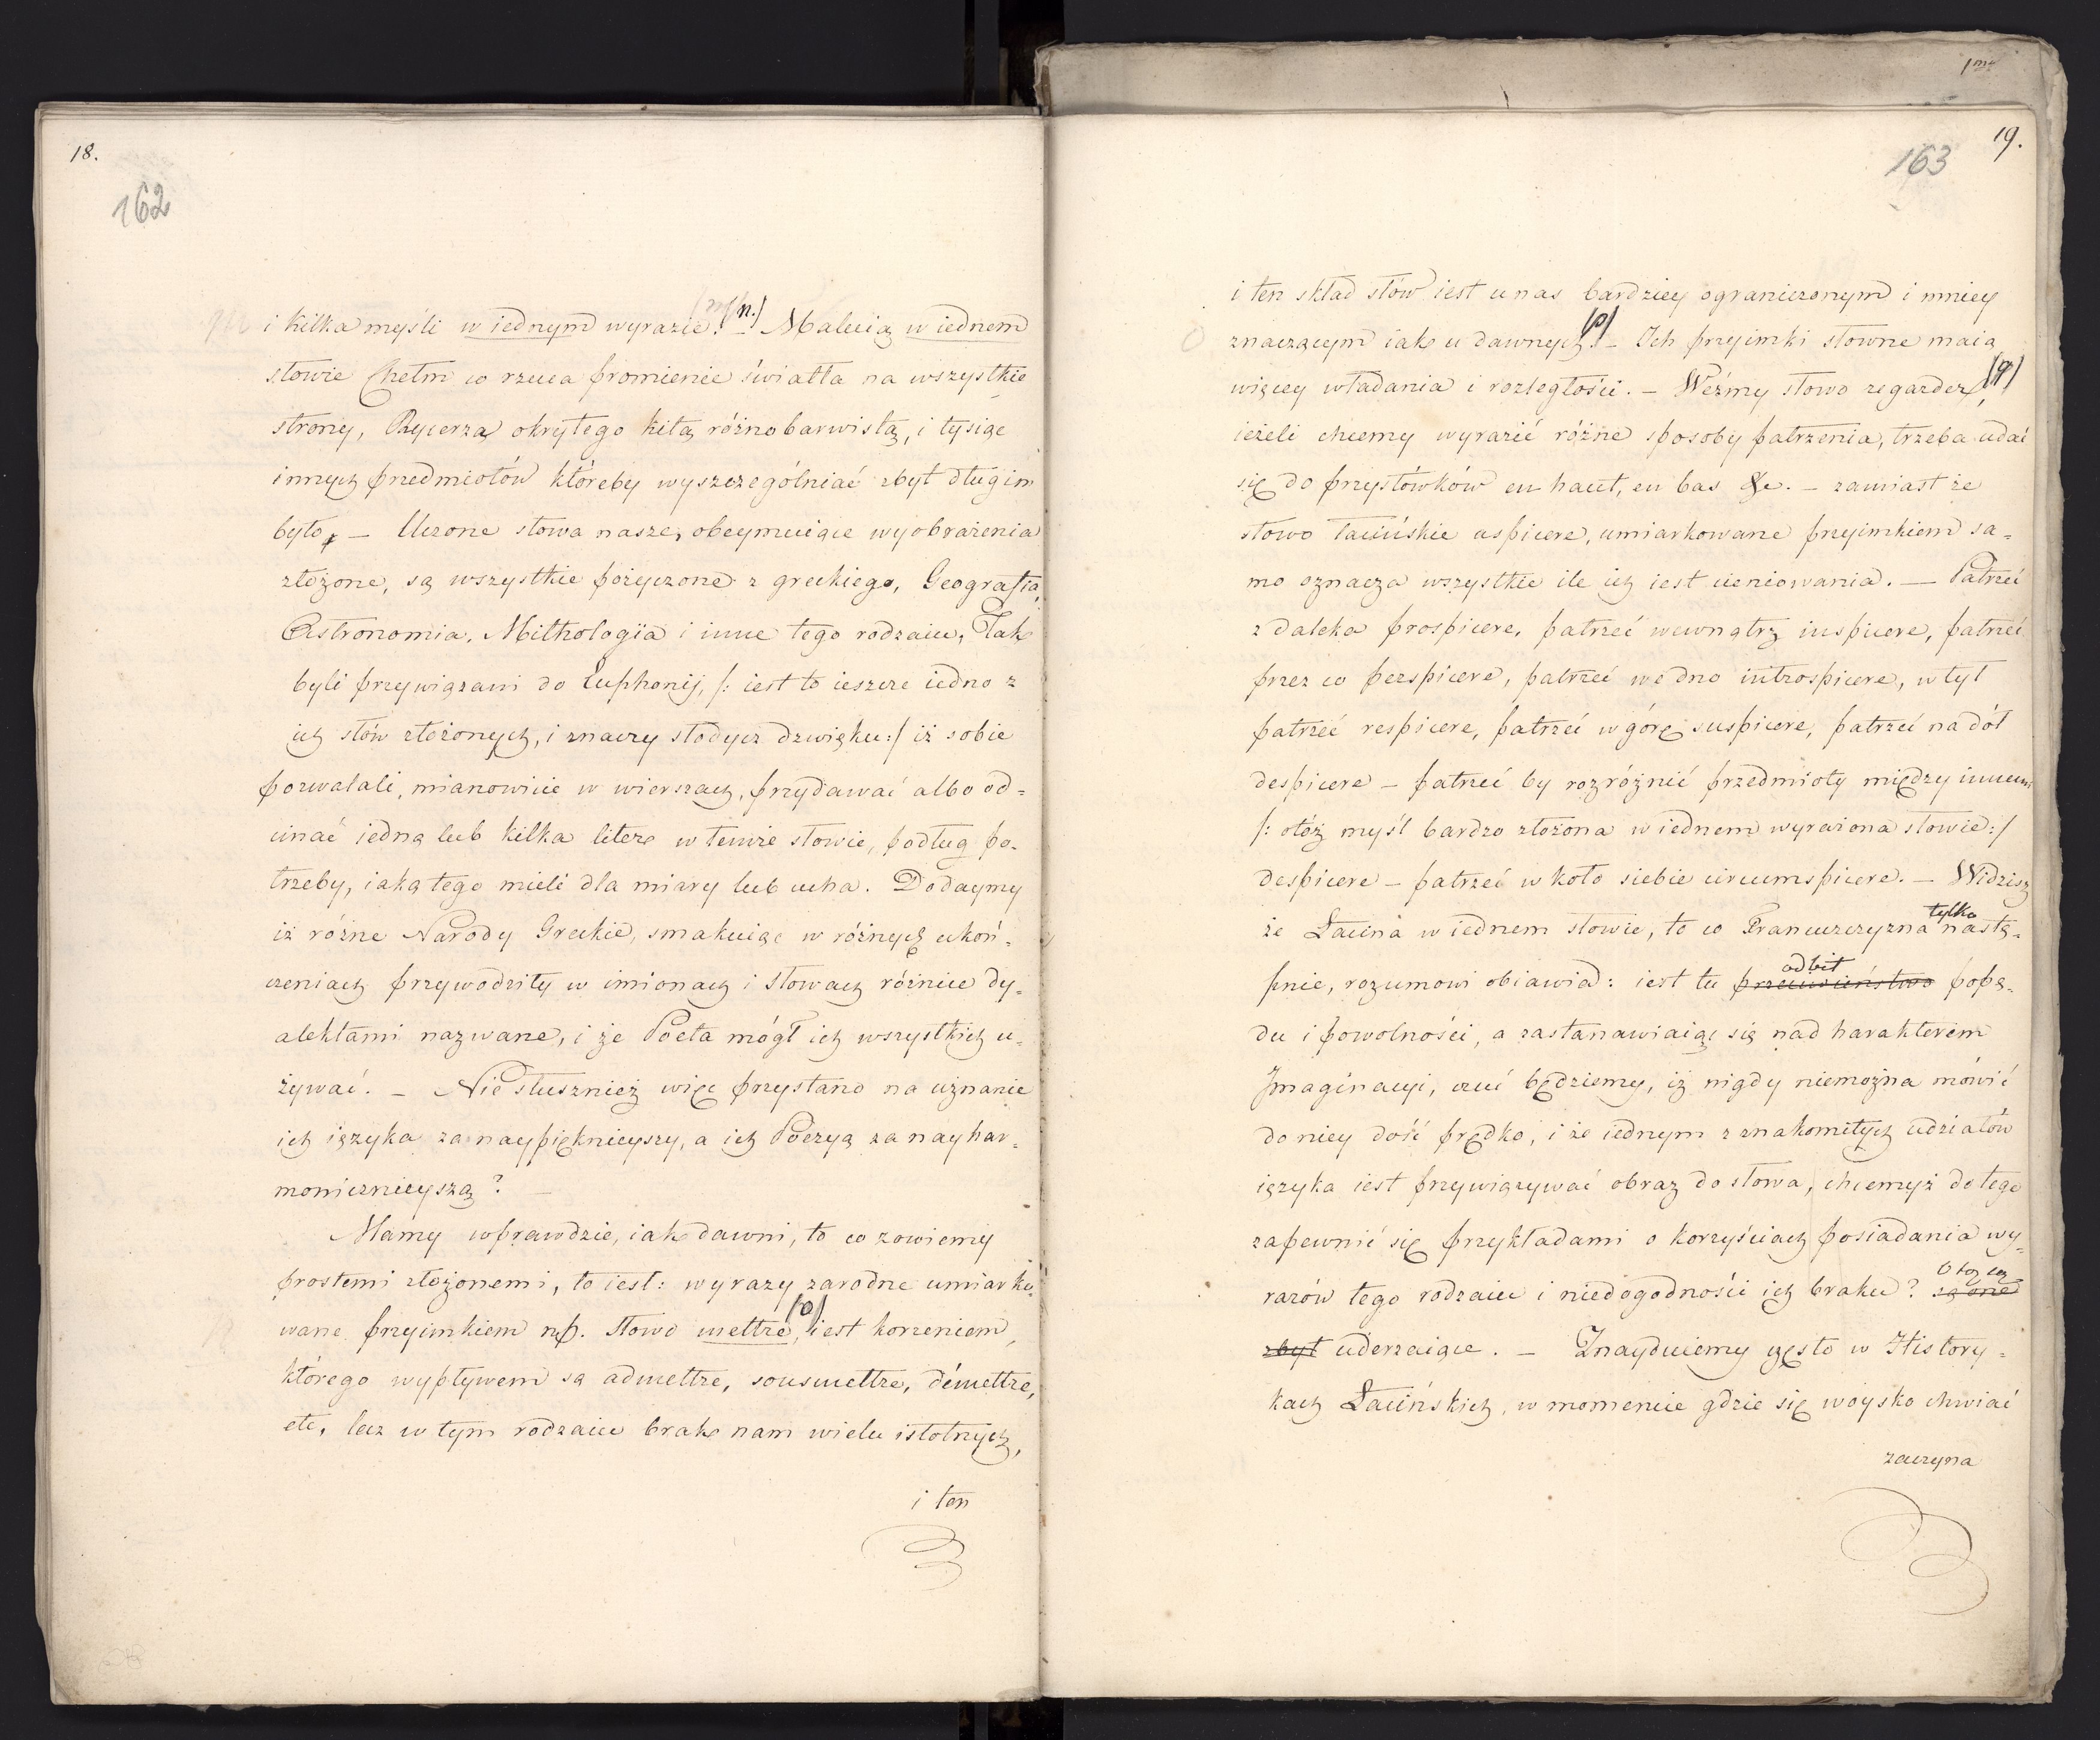 18.
162
i kilka myśli w iednym wyrazie. (n.) Maluią w iednem
słowie Chełm co rzuca promienie światła na wszystkie
strony, Rycerza okrytego kitą różnobarwistą, i tysiąc
innych przedmiotów któreby wyszczególniać zbyt długim
było. — Uczone słowa nasze, obeymuiące wyobrażenia
złożone, są wszystkie pożyczone z greckiego, Geografia,
Astronomia, Mithologia i inne tego rodzaiu, Tak
byli przywiązani do Euphonij, /: iest to ieszcze iedno z
ich słów złożonych, i znaczy słodycz dzwięku :/ iż sobie
pozwalali, mianowicie w wierszach, przydawać albo od=
cinać iedną lub kilka liter w temże słowie, podług po=
trzeby, iaką tego mieli dla miary lub ucha. Dodaymy
iż różne Narody Greckie, smakuiąc w różnych ukoń=
czeniach przywodziły w imionach i słowach różnice dy=
alektami nazwane, i że Poeta mógł ich wszystkich u=
żywać. — Nie słuszniez więc przystano na uznanie
ich ięzyka za naypięknieyszy, a ich Poezyą za nayhar=
monicznieyszą? —
Mamy wprawdzie, iak dawni, to co zowiemy
prostemi złożonemi, to iest: wyrazy zarodne umiarko=
wane przyimkiem np. słowo mettre, (o) iest korzeniem,
którego wypływem są admettre, sousmettre, démettre,
etc, lecz w tym rodzaiu brak nam wielu istotnych,
i ten
1my
19.
163
i ten skład słów iest u nas bardziey ograniczonym i mniey
znaczącym iak u dawnych. (p) — Ich przyimki słowne maią
więcey władania i rozległości. — Weźmy słowo regarder, (q)
ieżeli chcemy wyrazić różne sposoby patrzenia, trzeba udać
się do przysłówków en haut, en bas &c. — zamiast że
słowo łacińskie aspicere, umiarkowane przyimkiem sa=
mo oznacza wszystkie ile ich iest cieniowania. — Patrzeć
z daleka prospicere, patrzeć wewnątrz inspicere, patrzeć
przez co perspicere, patrzeć we dno introspicere, w tył
patrzeć respicere, patrzeć w górę suspicere, patrzeć na dół
despicere — patrzeć by rozróżnić przedmioty między innemi
/: otóż myśl bardzo złożona w iednem wyrażona słowie :/
despicere — patrzeć w koło siebie circumspicere. — Widzisz
że Łacina w iednem słowie, to co Francuzczyzna tylko nastę=
pnie, rozumowi obiawia: iest tu przeciwieństwo odbit popę=
du i powolności, a zastanawiaiąc się nad harakterem
Imaginacyi, czuć będziemy, iż nigdy niemożna mówić
do niey dość prędko, i że iednym z znakomitych udziałów
ięzyka iest przywiązywać obraz do słowa, chcemyż do tego
zapewnić się przykładami o korzyściach posiadania wy=
razów tego rodzaiu i niedogodności ich braku? są one
zbyt uderzaiące. — Znayduiemy często w History=
kach Łacińskich, w momencie gdzie się woysko chwiać
zaczyna